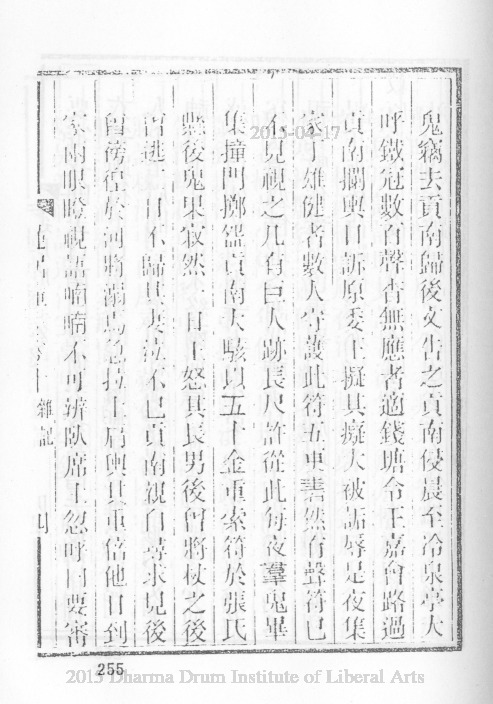 鬼竊去貢南歸後文告之貢南侵晨至冷泉亭大
呼鐵冠數百聲杳無應者適錢塘令王嘉會路過
貢南攔輿口訴原委王擬其癡大被詬辱是夜集
家丁雄健者數人守護此符五更砉然有聲符已
不見視之几有巨人跡長尺許從此每夜羣鬼畢
集撞門擲器貢南大駭以五十金重索符於張氏
懸後鬼果寂然一日王怒其長男後曾將杖之後
曾逃一日不歸其妻泣不已貢南親自尋求見後
曾徬徨於河將溺焉急拉上肩輿其重倍他日到
家兩眼瞪視語喃喃不可辨臥席上忽呼曰要審
雜記
四
2015-04-17
255
2015 Dharma Drum Institute of Liberal Arts